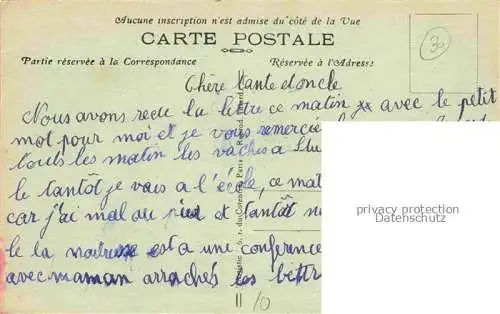 Aucune inscription n'est admise du côté de la Vue
CARTE POSTALE
Partie réservée à la Correspondance
Réservée à l'Adresse
30
Chère tante doncle
Nous avons recu la lettre ce matin xx avec le petit
mot pour moi et je vous remercie
touts les matin les vaches a
le tantôt je vais a l'école, ce mat
car j'ai mal au pied et tantôt n
le la maitresse est a une conference
avec maman arrachés les bettr
privacy protection
Datenschutz
10